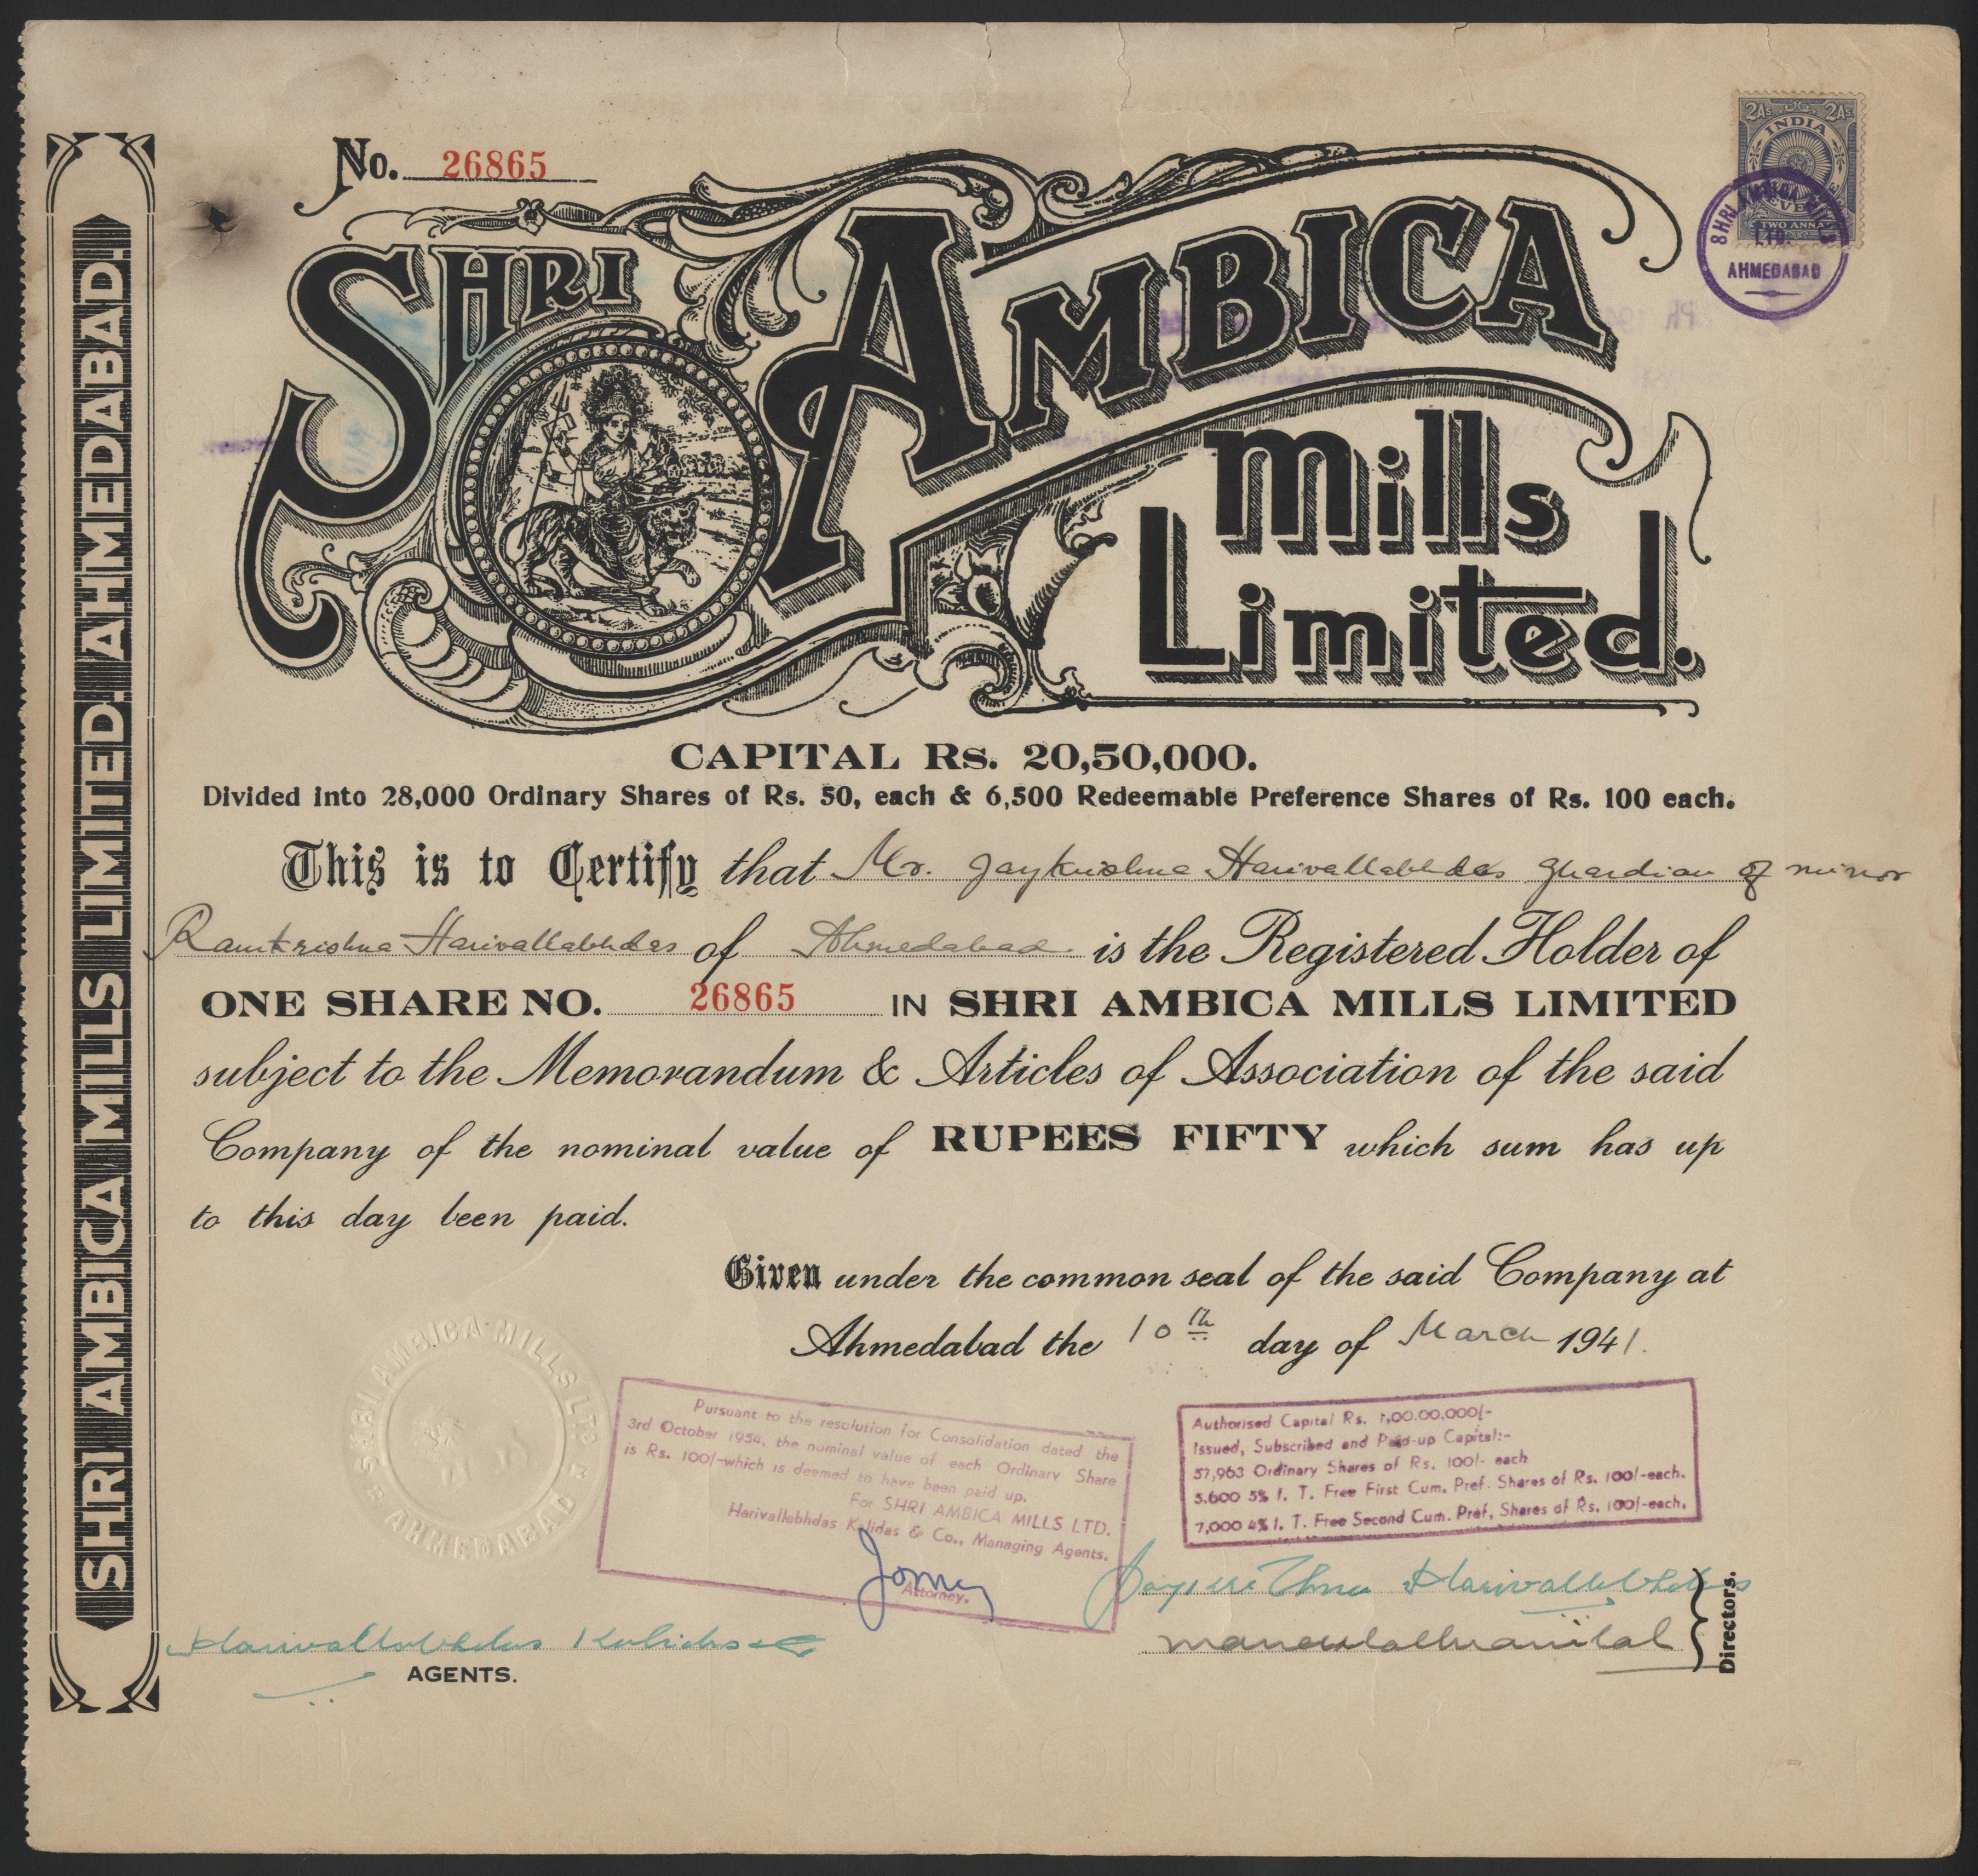 No. 26865
2As. 2As.
INDIA
REVENUE
TWO ANNAS
SHRI AMBICA MILLS
LTD.
AHMEDABAD
SHRI AMBICA
Mills
Limited.
SHRI AMBICA MILLS LIMITED. AHMEDABAD.
CAPITAL Rs. 20,50,000.
Divided into 28,000 Ordinary Shares of Rs. 50, each & 6,500 Redeemable Preference Shares of Rs. 100 each.
This is to Certify that Mr. Jaykrishna Harivallabhdas guardian of minor
Ramkrishna Harivallabhdas of Ahmedabad. is the Registered Holder of
ONE SHARE NO. 26865 IN SHRI AMBICA MILLS LIMITED
subject to the Memorandum & Articles of Association of the said
Company of the nominal value of RUPEES FIFTY which sum has up
to this day been paid.
Given under the common seal of the said Company at
Ahmedabad the 10th day of March 1941.
SHRI AMBICA MILLS LTD
AHMEDABAD
Pursuant to the resolution for Consolidation dated the
3rd October 1954, the nominal value of each Ordinary Share
is Rs. 100/-which is deemed to have been paid up.
For SHRI AMBICA MILLS LTD.
Harivallabhdas Kalidas & Co., Managing Agents.
Attorney.
Authorised Capital Rs. 1,00,00,000/-
Issued, Subscribed and Paid-up Capital:-
57,963 Ordinary Shares of Rs. 100/- each
5,600 5% I. T. Free First Cum. Pref. Shares of Rs. 100/-each.
7,000 4% I. T. Free Second Cum. Pref, Shares of Rs. 100/-each.
Jaykrishna Harivallabhdas
Directors.
Harivallabhdas Kalidas & Co
AGENTS.